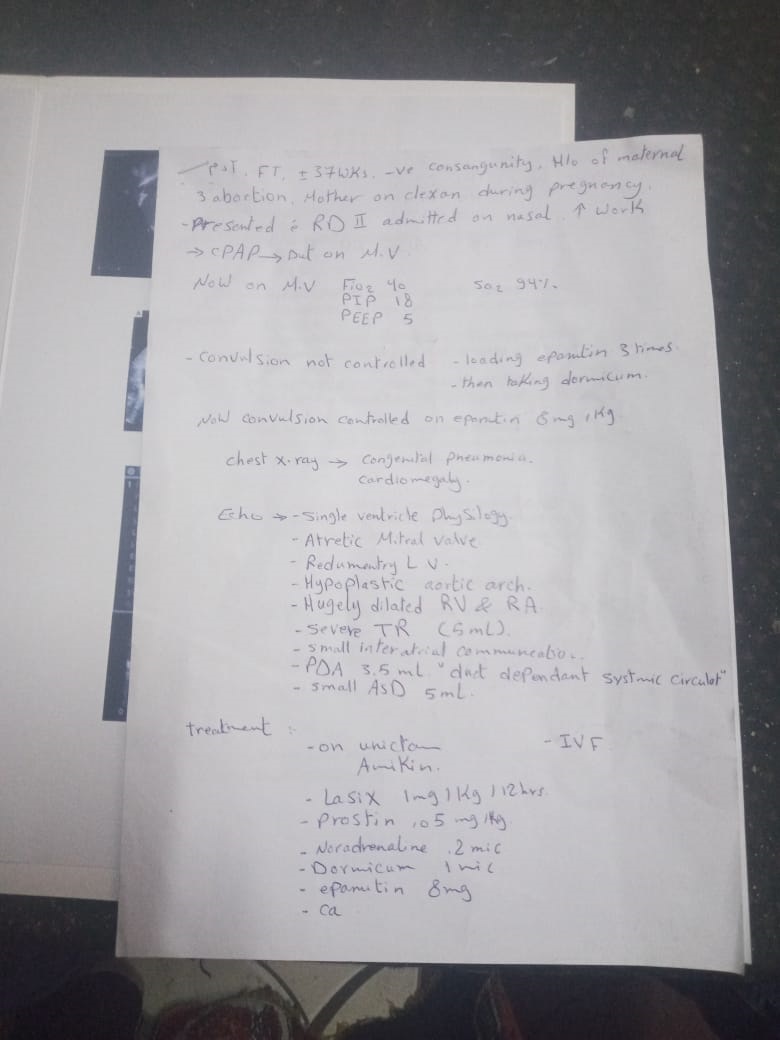 FT, ± 37 WKs, -ve consangunity, H/o of maternal
3 abortion, Mother on clexan during pregnancy.
- Presented c̄ RD II admitted on nasal, ↑ work
→ CPAP → put on M.V
Now on M.V Fio2 40 So2 94%.
PIP 18
PEEP 5
- Convulsion not controlled - loading epanutin 3 times.
- then taking dormicum.
Now convulsion controlled on epanutin 8mg /Kg
chest x-ray → Congenital pneumonia.
Cardiomegaly.
Echo → - Single ventricle physilogy.
- Atretic Mitral valve
- Redumentry L V.
- Hypoplastic aortic arch.
- Hugely dilated RV & RA
- Severe TR (5mL).
- small interatrial communcatio..
- PDA 3.5 mL "duct dependant systmic circulat"
- small ASD 5mL.
treatment :
- on unictam - IVF
Amikin.
- Lasix 1mg / Kg / 12hrs.
- Prostin .05 mg/Kg
- Noradrenaline .2 mic
- Dormicum 1 mic
- epanutin 8mg
- Ca